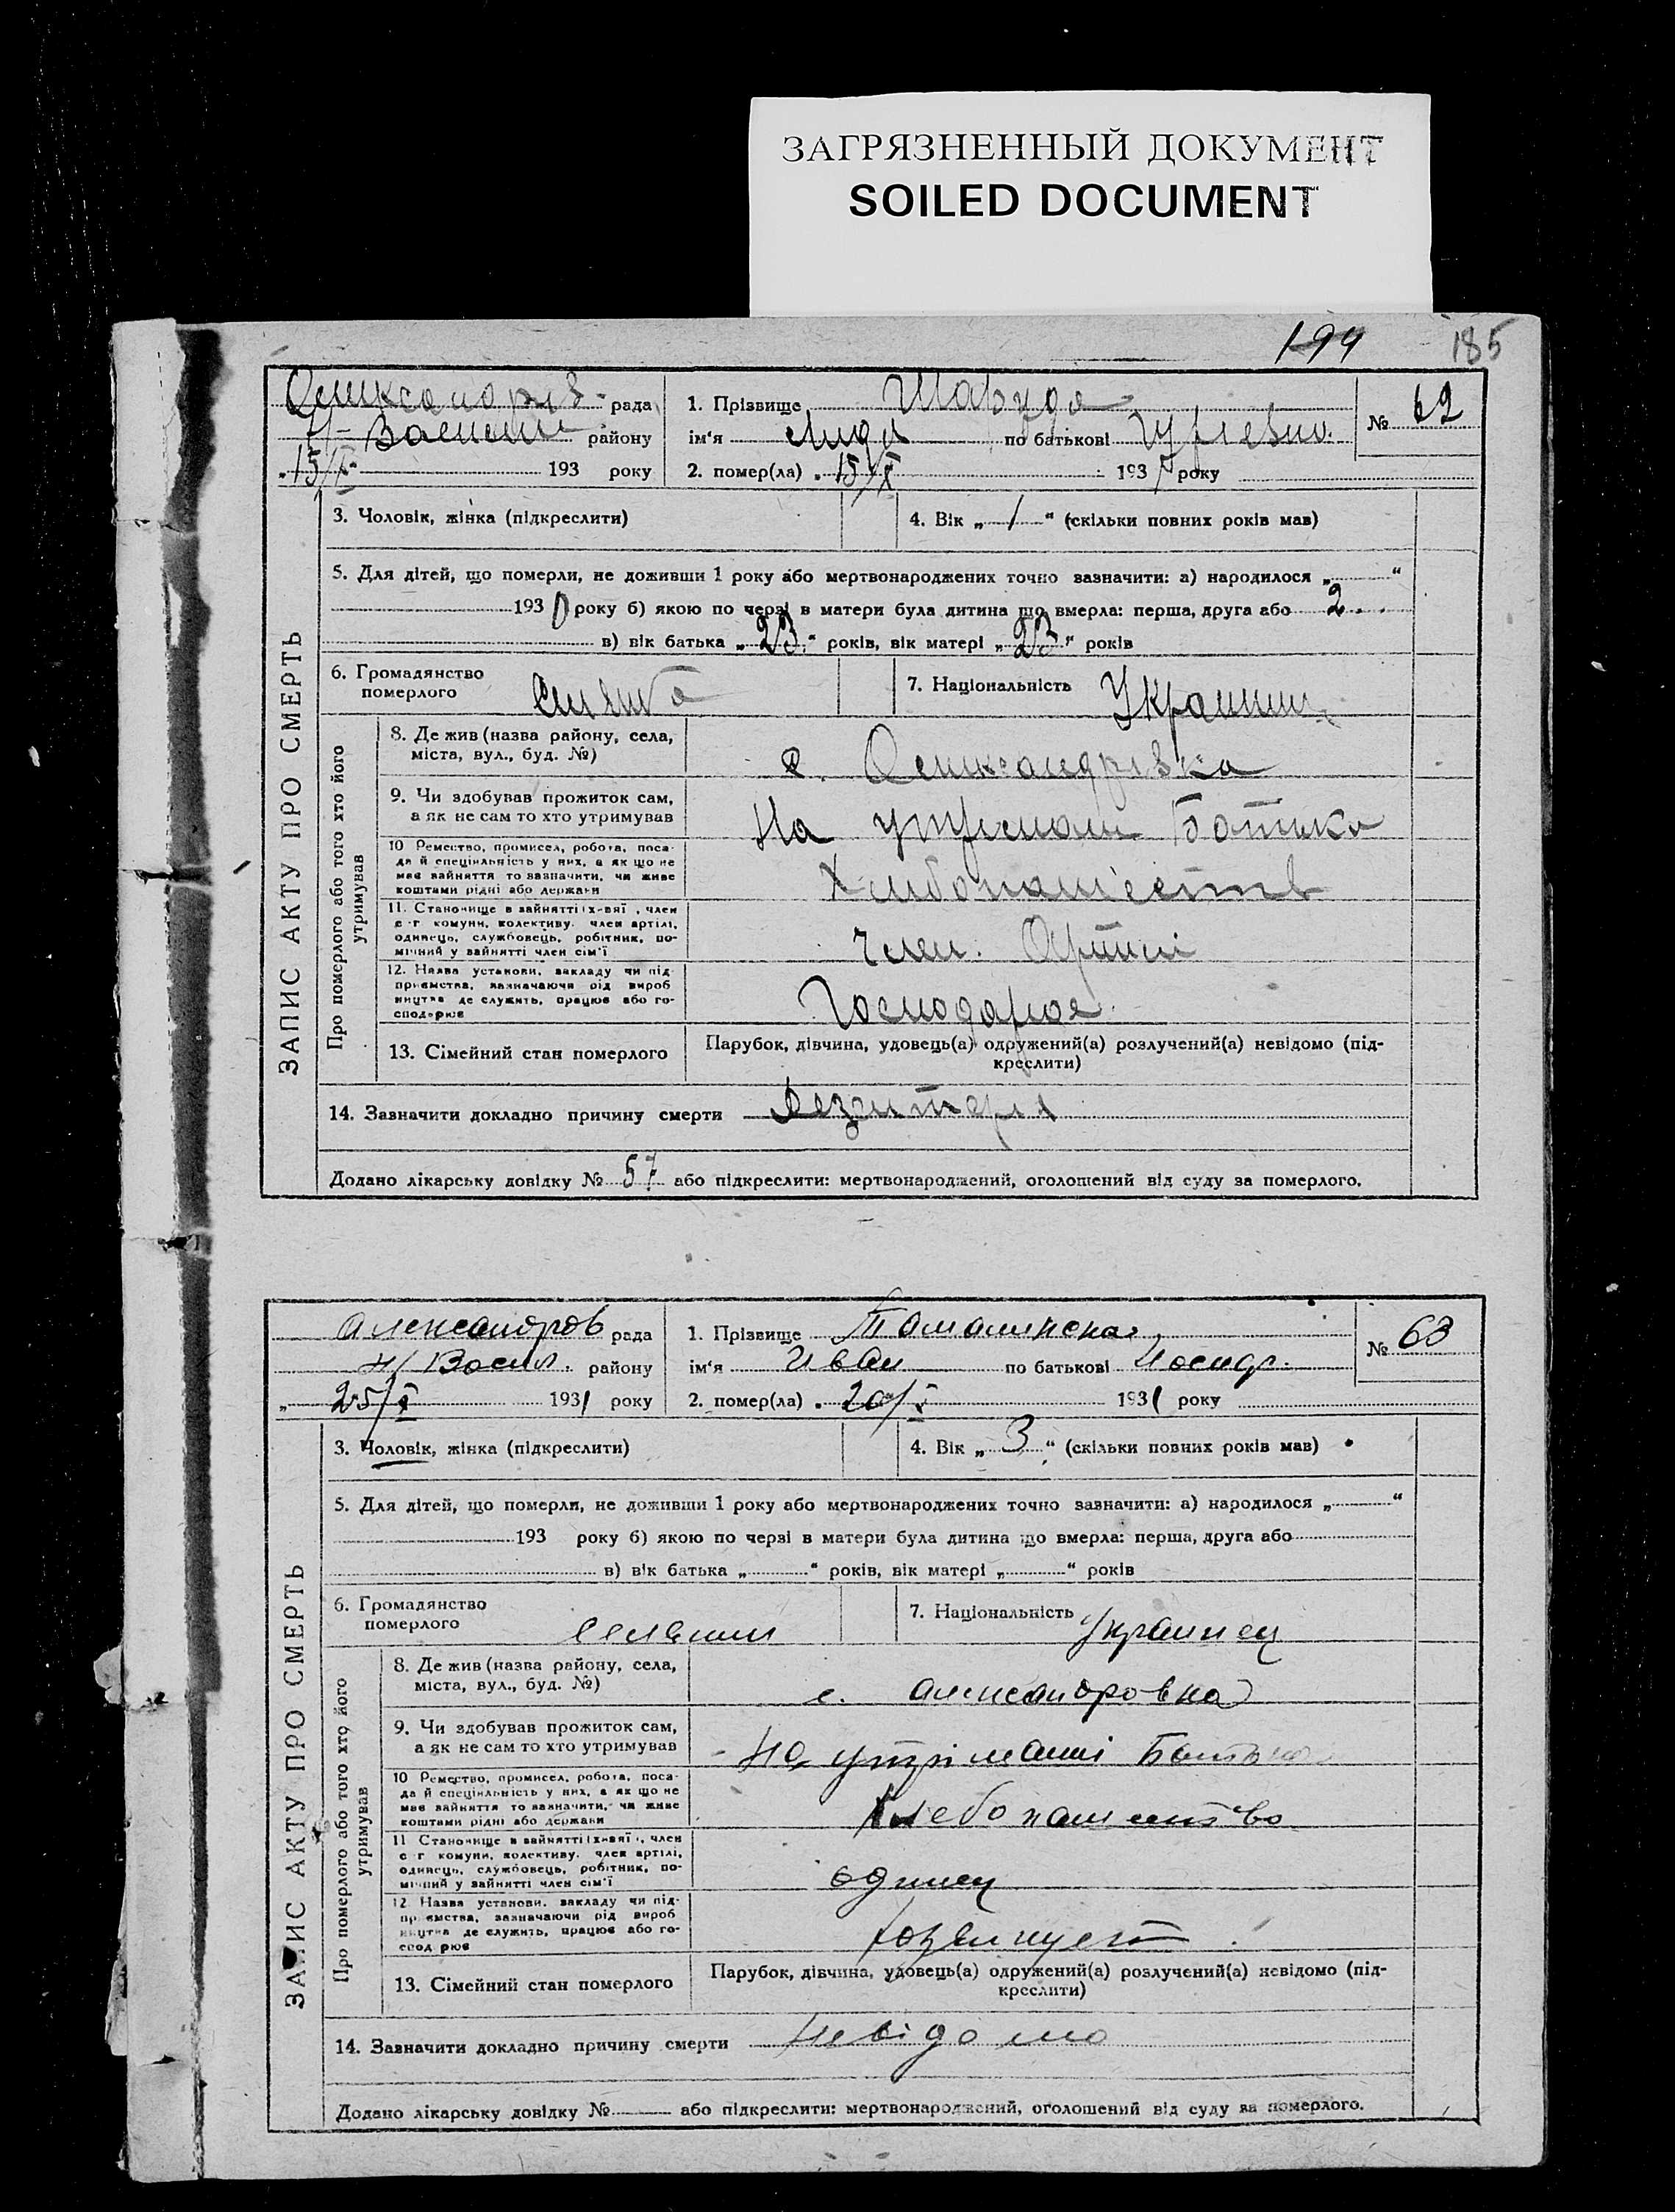 ЗАГРЯЗНЕННЫЙ ДОКУМЕНТ
SOILED DOCUMENT
194 185
рада 1. Прізвище Шаруда № 62
району ім'я Лида по батькові
„15/X 193 року 2. помер(ла) „15/X 193 року
3. Чоловік, жінка (підкреслити) 4. Вік „1“ (скільки повних років мав)
5. Для дітей, що померли, не доживши 1 року або мертвонароджених точно зазначити: а) народилося „ “
193 0 року б) якою по черзі в матери була дитина що вмерла: перша, друга або 2
в) вік батька „23“ років, вік матері „23“ років
6. Громадянство
померлого
7. Національність
8. Де жив (назва району, села,
міста, вул., буд. №)
с. Олександрівка
9. Чи здобував прожиток сам,
а як не сам то хто утримував
На Батька
10 Ремество, промисел, робота, поса-
да й спеціяльність у них, а як що не
має зайняття то зазначити, чи живе
коштами рідні або держави
11. Становище в зайнятті (хазяї, член
с-г комуни, колективу, член артілі,
одинець, службовець, робітник, по-
мічний у зайнятті член сім'ї
член. Артілі
12. Назва установи, закладу чи під-
приємства, зазначаючи рід вироб
ництва де служить, працює або го-
сподарює
Господарює
13. Сімейний стан померлого Парубок, дівчина, удовець(а) одружений(а) розлучений(а) невідомо (під-
креслити)
14. Зазначити докладно причину смерти
Додано лікарську довідку № 57 або підкреслити: мертвонароджений, оголошений від суду за померлого.
ЗАПИС АКТУ ПРО СМЕРТЬ
Про померлого або того хто його
утримував
Александров рада 1. Прізвище № 63
Н/Васил. району ім'я Иван по батькові Иосидр.
„25/X 1931 року 2. помер(ла) „20/X 1931 року
3. Чоловік, жінка (підкреслити) 4. Вік „3“ (скільки повних років мав)
5. Для дітей, що померли, не доживши 1 року або мертвонароджених точно зазначити: а) народилося „ “
193 року б) якою по черзі в матери була дитина що вмерла: перша, друга або
в) вік батька „ “ років, вік матері „ “ років
6. Громадянство
померлого
селянин
7. Національність Украинец
8. Де жив (назва району, села,
міста, вул., буд. №)
с. Александровка
9. Чи здобував прожиток сам,
а як не сам то хто утримував
На утріманні Батька
10 Ремество, промисел, робота, поса-
да й спеціяльність у них, а як що не
має зайняття то зазначити, чи живе
коштами рідні або держави
Хлебопашество
11 Становище в зайнятті (хазяї, член
с-г комуни, колективу, член артілі,
одинець, службовець, робітник, по-
мічний у зайнятті член сім'ї
одинец
12. Назва установи, закладу чи під-
приємства, зазначаючи рід вироб
ництва де служить, працює або го-
сподарює
13. Сімейний стан померлого Парубок, дівчина, удовець(а) одружений(а) розлучений(а) невідомо (під-
креслити)
14. Зазначити докладно причину смерти Невідомо
Додано лікарську довідку № або підкреслити: мертвонароджений, оголошений від суду за померлого.
ЗАПИС АКТУ ПРО СМЕРТЬ
Про померлого або того хто його
утримував